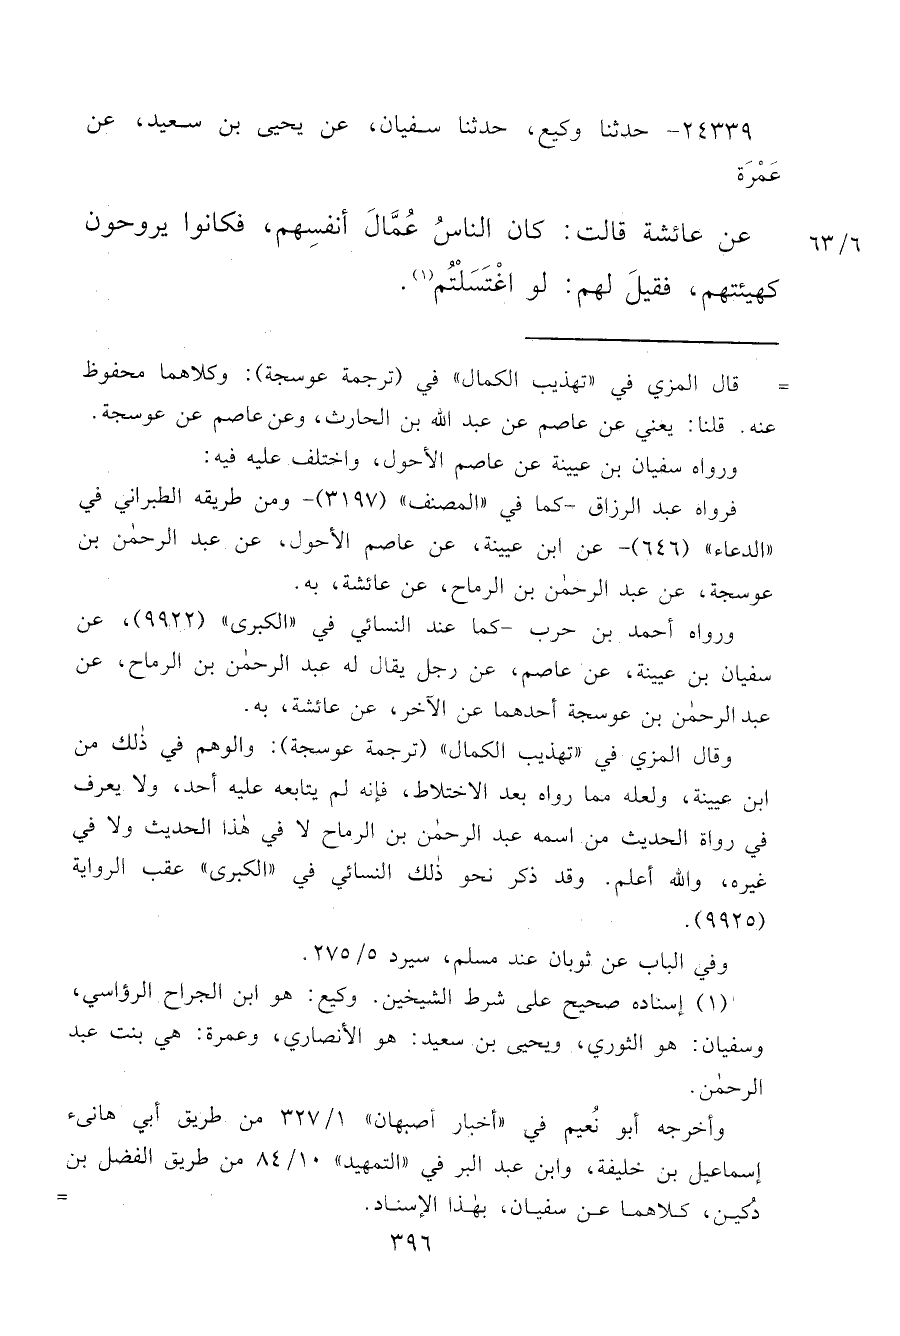 ٢٤٣٣٩- حدثنا وكيع، حدثنا سفيان، عن يحيى بن سعيد، عن
عَمْرَة
٦٣/٦ عن عائشة قالت: كان الناسُ عُمَّالَ أنفسِهم، فكانوا يروحون
كهيئتهم، فقيلَ لهم: لو اغْتَسَلْتُم(١).
= قال المزي في «تهذيب الكمال» في (ترجمة عوسجة): وكلاهما محفوظ
عنه. قلنا: يعني عن عاصم عن عبد الله بن الحارث، وعن عاصم عن عوسجة.
ورواه سفيان بن عيينة عن عاصم الأحول، واختلف عليه فيه:
فرواه عبد الرزاق -كما في «المصنف» (٣١٩٧)- ومن طريقه الطبراني في
«الدعاء» (٦٤٦)- عن ابن عيينة، عن عاصم الأحول، عن عبد الرحمٰن بن
عوسجة، عن عبد الرحمٰن بن الرماح، عن عائشة، به.
ورواه أحمد بن حرب -كما عند النسائي في «الكبرى» (٩٩٢٢)، عن
سفيان بن عيينة، عن عاصم، عن رجل يقال له عبد الرحمٰن بن الرماح، عن
عبد الرحمٰن بن عوسجة أحدهما عن الآخر، عن عائشة، به.
وقال المزي في «تهذيب الكمال» (ترجمة عوسجة): والوهم في ذٰلك من
ابن عيينة، ولعله مما رواه بعد الاختلاط، فإنه لم يتابعه عليه أحد، ولا يعرف
في رواة الحديث من اسمه عبد الرحمٰن بن الرماح لا في هٰذا الحديث ولا في
غيره، والله أعلم. وقد ذكر نحو ذٰلك النسائي في «الكبرى» عقب الرواية
(٩٩٢٥).
وفي الباب عن ثوبان عند مسلم، سيرد ٢٧٥/٥.
(١) إسناده صحيح على شرط الشيخين. وكيع: هو ابن الجراح الرؤاسي،
وسفيان: هو الثوري، ويحيى بن سعيد: هو الأنصاري، وعمرة: هي بنت عبد
الرحمٰن.
وأخرجه أبو نُعيم في «أخبار أصبهان» ٣٢٧/١ من طريق أبي هانىء
إسماعيل بن خليفة، وابن عبد البر في «التمهيد» ٨٤/١٠ من طريق الفضل بن
دُكين، كلاهما عن سفيان، بهٰذا الإسناد. =
٣٩٦